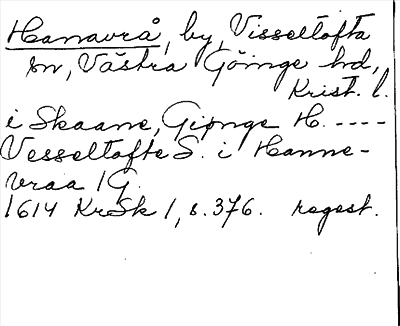 Hanavrå, by, Visseltofta
sn, Västra Göinge hd,
Krist. l.
i Skaane, Giønge H. ----
Vesseltofte S. i Hanne-
vraa 1 G.
1614 KrSk 1, s. 376. regest.